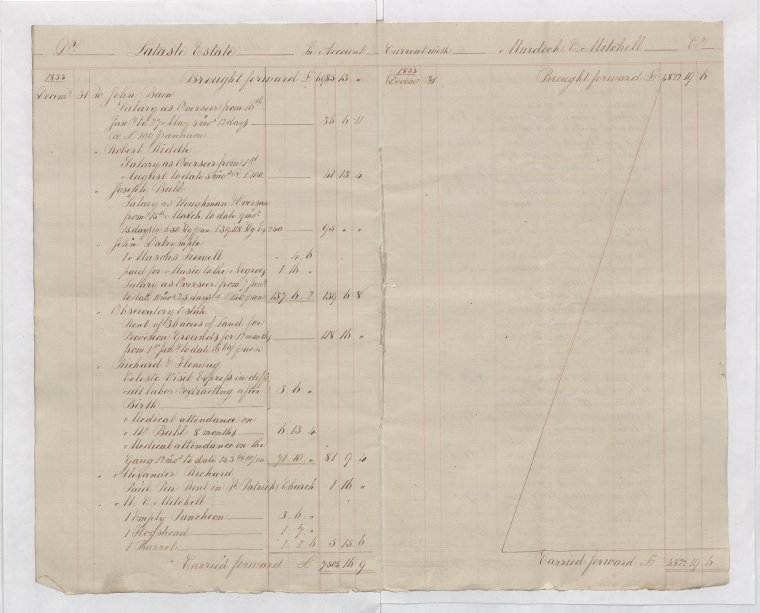 Dr Lataste Estate In Account Current with Murdoch & Mitchell Cr
1833
Brought forward £ 6985 13 "
Decemr 31 To John Bain
Salary as Overseer from 16th
Jany to 27 May 4 mos 12 days
@ £100 pannum 36 6 11
" Robert Riddle
Salary as Overseer from 1st
August to date 5 mos @ £100 41 13 4
" Joseph Buhl
Salary as Ploughman & Overseer
from 14th March to date 9 mos
95 " "
" John Dalrymple
1 Masons Trowell " 4 6
paid for Music to the Negroes 1 16 "
Salary as Overseer from Jany
to date 11 mos 25 days 137 6 2 139 6 8
" Observatory Estate
Rent of 36 acres of Land for
Provision Grounds for 12 months
from 1st Jany to date @ 66/ p acre 118 16 "
" Richard & Fleming
Celeste Visit Express in diffi
cult labor extracting after
Birth 3 6 "
Medical attendance on
Mr Buhl 8 months 6 13 4
Medical attendance on the
Gang 12 mos to date 143 @ 10/ ea 71 10 " 81 9 4
" Alexander Richard
Paid Pew Rent in St Patricks Church 1 16 "
" M & Mitchell
1 Empty Puncheon 3 6 "
1 Hogshead 1 7 "
1 Barrel 1 2 6 5 15 6
Carried forward £ 7505 16 9
1833
Decemr 31 Brought forward £ 4822 19 6
Carried forward £ 4822 19 6